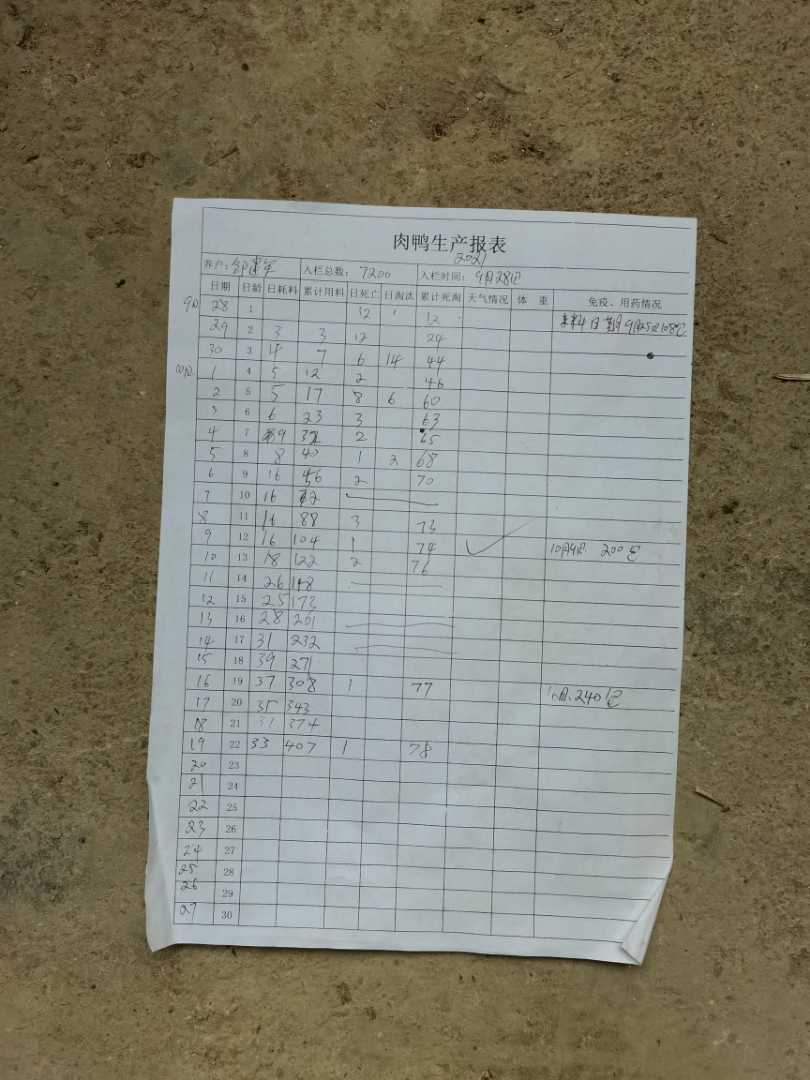 肉鸭生产报表
2021
养户: 入栏总数: 7200 入栏时间: 9月28日
日期 日龄 日耗料 累计用料 日死亡 日淘汰 累计死淘 天气情况 体 重 免疫、用药情况
9月 28 1 12 12
29 2 3 3 12 24
30 3 4 7 6 14 44
10月 1 4 5 12 2 46
2 5 5 17 8 6 60
3 6 6 23 3 63
4 7 9 32 2 65
5 8 8 40 1 2 68
6 9 16 56 2 70
7 10 16 72
8 11 16 88 3 73
9 12 16 104 1 74 10月9日 200包
10 13 18 122 2 76
11 14 26 148
12 15 25 173
13 16 28 201
14 17 31 232
15 18 39 271
16 19 37 308 1 77 240包
17 20 35 343
18 21 31 374
19 22 33 407 1 78
20 23
21 24
22 25
23 26
24 27
25 28
26 29
27 30